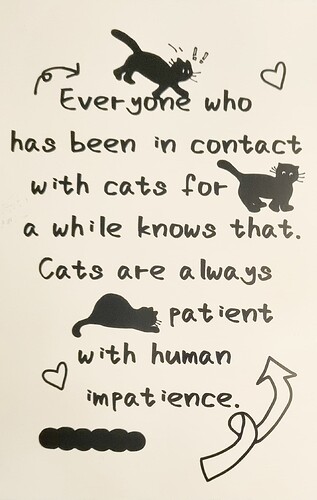 Everyone who
has been in contact
with cats for
a while knows that.
Cats are always
patient
with human
impatience.